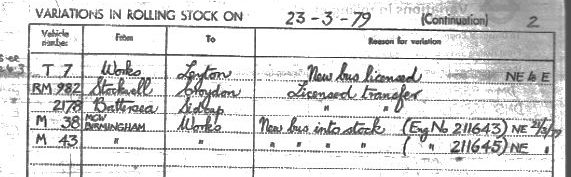 VARIATIONS IN ROLLING STOCK ON 23-3-79 (Continuation) 2
Vehicle number From To Reason for variation
T 7 Works Leyton New bus licensed NE & E
RM 982 Stockwell Croydon Licensed transfer
2178 Battersea Sidcup " "
M 38 MCW BIRMINGHAM Works New bus into stock (Eng No 211643) NE 21/3/79
M 43 " " " " " " ( " 211645) NE "